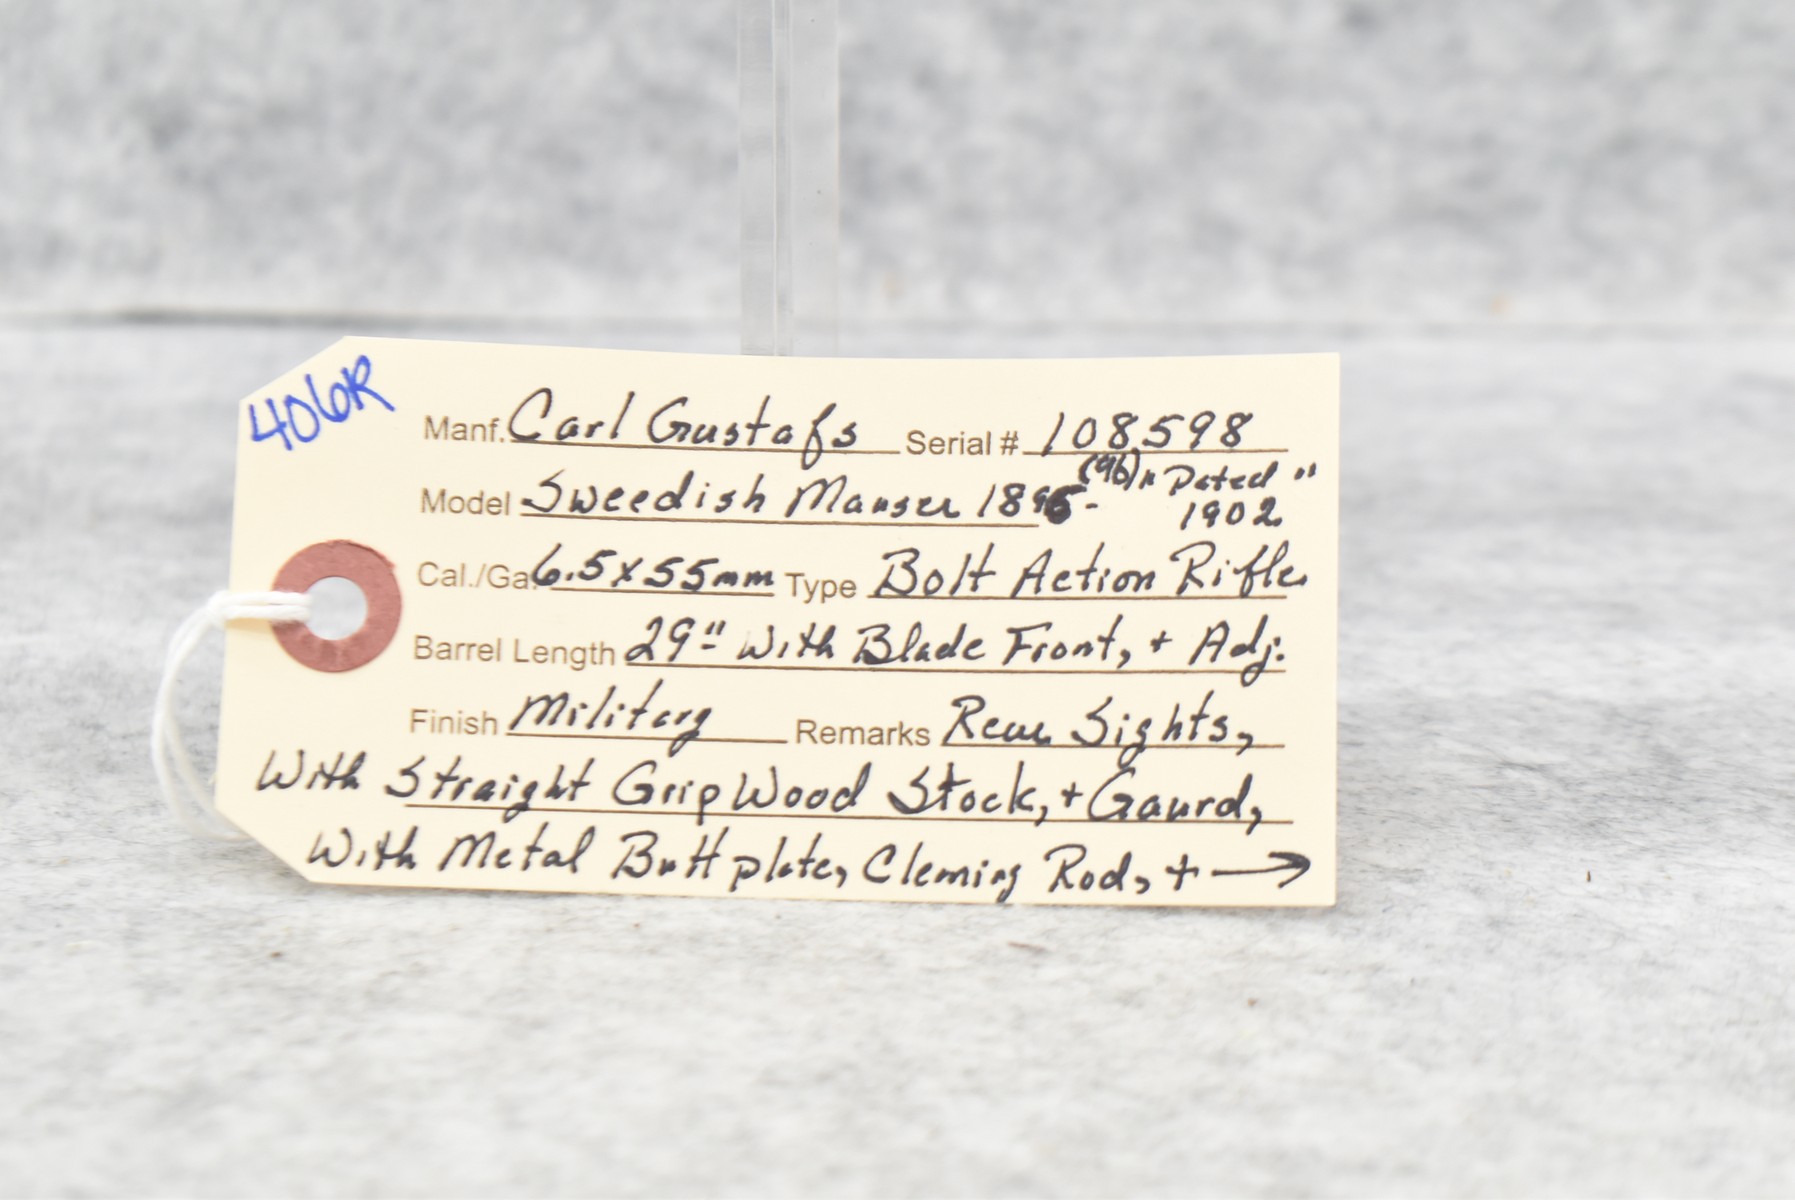 406R
Manf. Carl Gustafs Serial # 108598
Model Sweedish Mauser 1896- (96) "Dated" 1902
Cal./Ga. 6.5x55mm Type Bolt Action Rifle,
Barrel Length 29" With Blade Front, + Adj.
Finish Military Remarks Rear Sights,
With Straight Grip Wood Stock, + Gaurd,
With Metal Buttplate, Cleaning Rod, + →